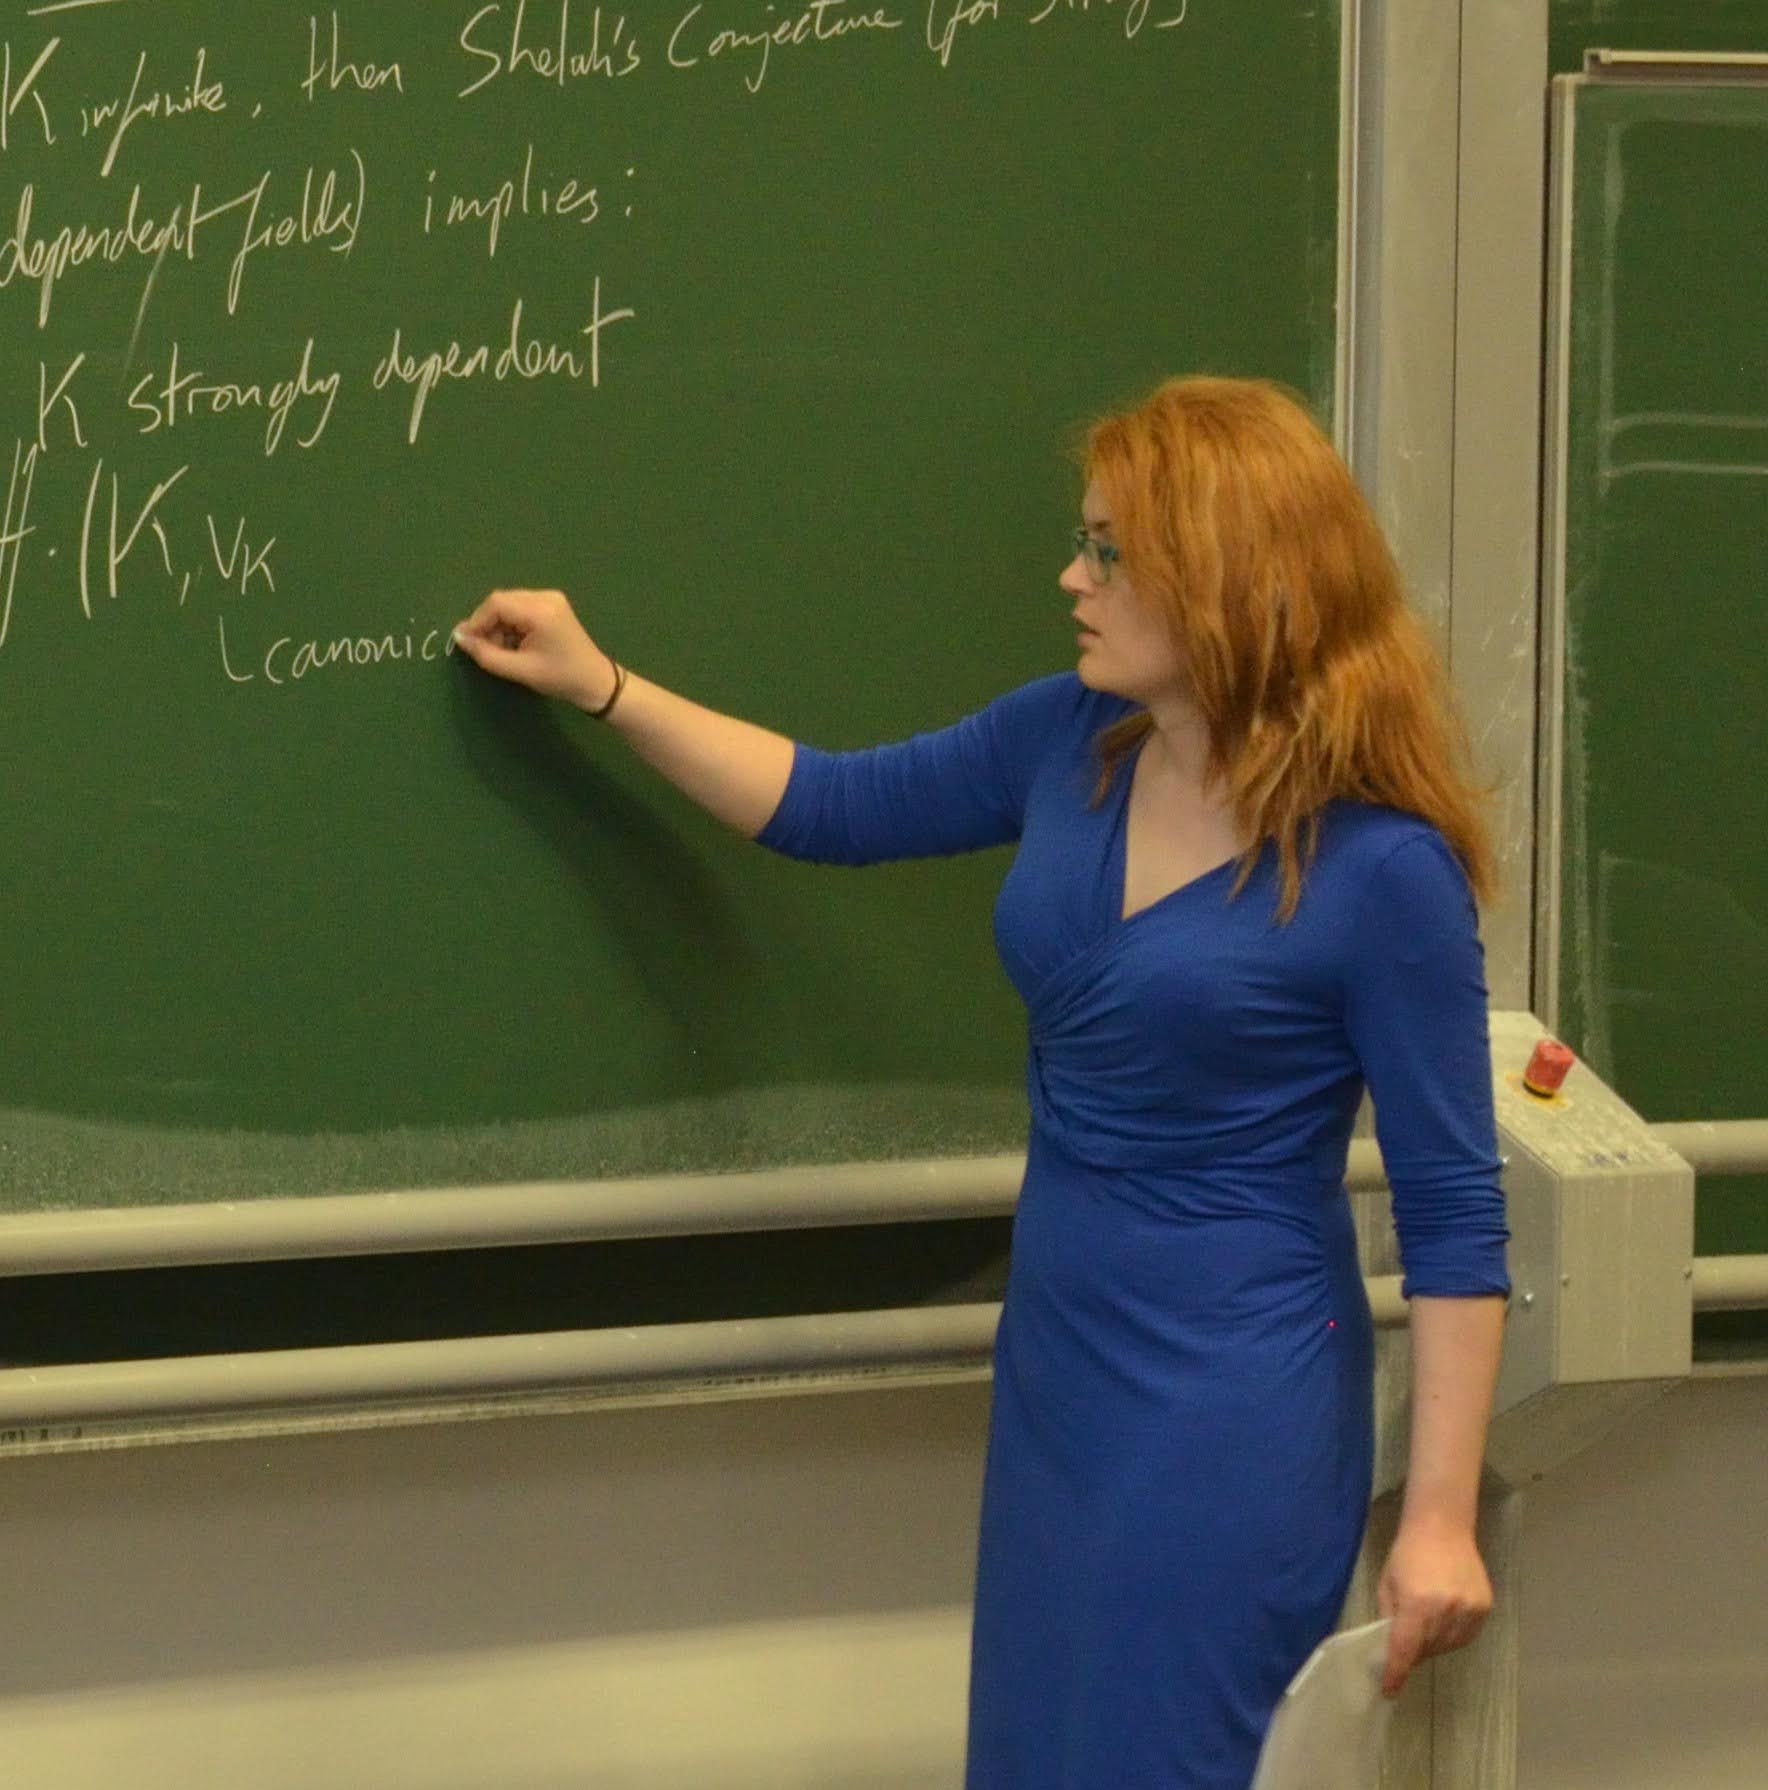 K infinite, then Shelah's Conjecture (for
dependent fields) implies:
K strongly dependent
(K, vK
canonica